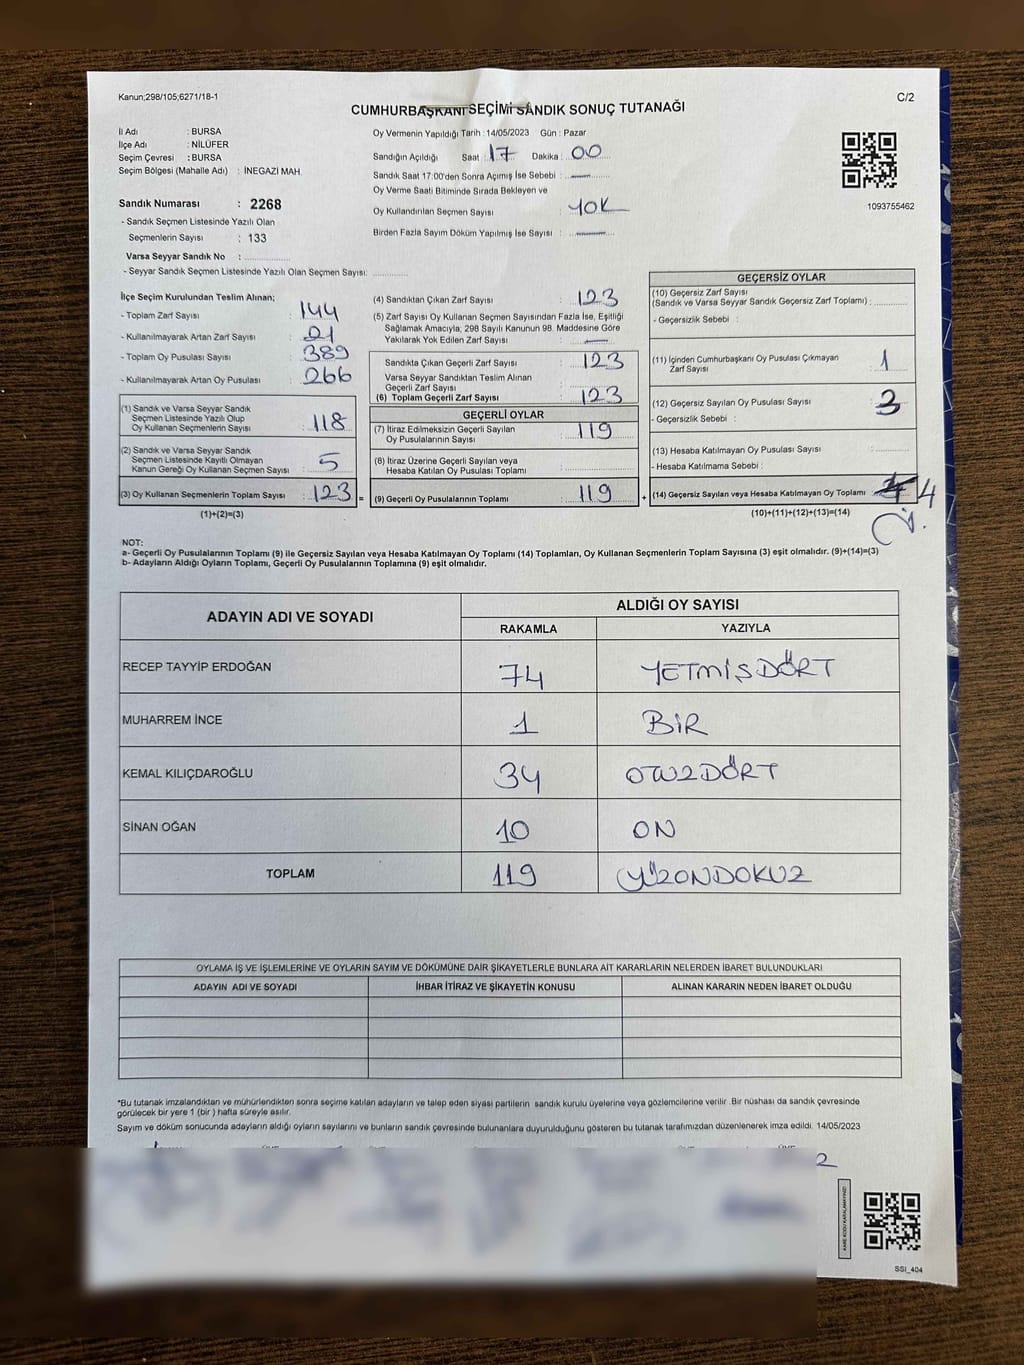 Kanun;298/105;6271/18-1
C/2
CUMHURBAŞKANI SEÇİMİ SANDIK SONUÇ TUTANAĞI
İl Adı : BURSA
İlçe Adı : NİLÜFER
Seçim Çevresi : BURSA
Seçim Bölgesi (Mahalle Adı) : İNEGAZİ MAH.
Sandık Numarası : 2268
- Sandık Seçmen Listesinde Yazılı Olan
Seçmenlerin Sayısı : 133
Varsa Seyyar Sandık No :
- Seyyar Sandık Seçmen Listesinde Yazılı Olan Seçmen Sayısı:
Oy Vermenin Yapıldığı Tarih : 14/05/2023 Gün : Pazar
Sandığın Açıldığı Saat : 17 Dakika : 00
Sandık Saat 17:00'den Sonra Açımış İse Sebebi : —
Oy Verme Saati Bitiminde Sırada Bekleyen ve
Oy Kullandırılan Seçmen Sayısı : YOK
Birden Fazla Sayım Döküm Yapılmış İse Sayısı : —
1093755462
İlçe Seçim Kurulundan Teslim Alınan;
- Toplam Zarf Sayısı : 144
- Kullanılmayarak Artan Zarf Sayısı : 21
- Toplam Oy Pusulası Sayısı : 389
- Kullanılmayarak Artan Oy Pusulası : 266
(1) Sandık ve Varsa Seyyar Sandık
Seçmen Listesinde Yazılı Olup
Oy Kullanan Seçmenlerin Sayısı : 118
(2) Sandık ve Varsa Seyyar Sandık
Seçmen Listesinde Kayıtlı Olmayan
Kanun Gereği Oy Kullanan Seçmen Sayısı : 5
(3) Oy Kullanan Seçmenlerin Toplam Sayısı : 123 =
(1)+(2)=(3)
(4) Sandıktan Çıkan Zarf Sayısı : 123
(5) Zarf Sayısı Oy Kullanan Seçmen Sayısından Fazla İse, Eşitliği
Sağlamak Amacıyla, 298 Sayılı Kanunun 98. Maddesine Göre
Yakılarak Yok Edilen Zarf Sayısı : —
Sandıkta Çıkan Geçerli Zarf Sayısı : 123
Varsa Seyyar Sandıktan Teslim Alınan
Geçerli Zarf Sayısı :
(6) Toplam Geçerli Zarf Sayısı : 123
GEÇERLİ OYLAR
(7) İtiraz Edilmeksizin Geçerli Sayılan
Oy Pusulalarının Sayısı : 119
(8) İtiraz Üzerine Geçerli Sayılan veya
Hesaba Katılan Oy Pusulası Toplamı :
(9) Geçerli Oy Pusulalarının Toplamı : 119 +
GEÇERSİZ OYLAR
(10) Geçersiz Zarf Sayısı
(Sandık ve Varsa Seyyar Sandık Geçersiz Zarf Toplamı) :
- Geçersizlik Sebebi :
(11) İçinden Cumhurbaşkanı Oy Pusulası Çıkmayan
Zarf Sayısı : 1
(12) Geçersiz Sayılan Oy Pusulası Sayısı : 3
- Geçersizlik Sebebi :
(13) Hesaba Katılmayan Oy Pusulası Sayısı :
- Hesaba Katılmama Sebebi :
(14) Geçersiz Sayılan veya Hesaba Katılmayan Oy Toplamı : 4
(10)+(11)+(12)+(13)=(14)
NOT:
a- Geçerli Oy Pusulalarının Toplamı (9) ile Geçersiz Sayılan veya Hesaba Katılmayan Oy Toplamı (14) Toplamları, Oy Kullanan Seçmenlerin Toplam Sayısına (3) eşit olmalıdır. (9)+(14)=(3)
b- Adayların Aldığı Oyların Toplamı, Geçerli Oy Pusulalarının Toplamına (9) eşit olmalıdır.
ADAYIN ADI VE SOYADI
ALDIĞI OY SAYISI
RAKAMLA YAZIYLA
RECEP TAYYİP ERDOĞAN 74 YETMİŞDÖRT
MUHARREM İNCE 1 BİR
KEMAL KILIÇDAROĞLU 34 OTUZDÖRT
SİNAN OĞAN 10 ON
TOPLAM 119 YÜZONDOKUZ
OYLAMA İŞ VE İŞLEMLERİNE VE OYLARIN SAYIM VE DÖKÜMÜNE DAİR ŞİKAYETLERLE BUNLARA AİT KARARLARIN NELERDEN İBARET BULUNDUKLARI
ADAYIN ADI VE SOYADI İHBAR İTİRAZ VE ŞİKAYETİN KONUSU ALINAN KARARIN NEDEN İBARET OLDUĞU
*Bu tutanak imzalandıktan ve mühürlendikten sonra seçime katılan adayların ve talep eden siyasi partilerin sandık kurulu üyelerine veya gözlemcilerine verilir .Bir nüshası da sandık çevresinde
görülecek bir yere 1 (bir ) hafta süreyle asılır.
Sayım ve döküm sonucunda adayların aldığı oyların sayılarını ve bunların sandık çevresinde bulunanlara duyurulduğunu gösteren bu tutanak tarafımızdan düzenlenerek imza edildi. 14/05/2023
KARE KODU KARALAMAYINIZ!
SSI_404